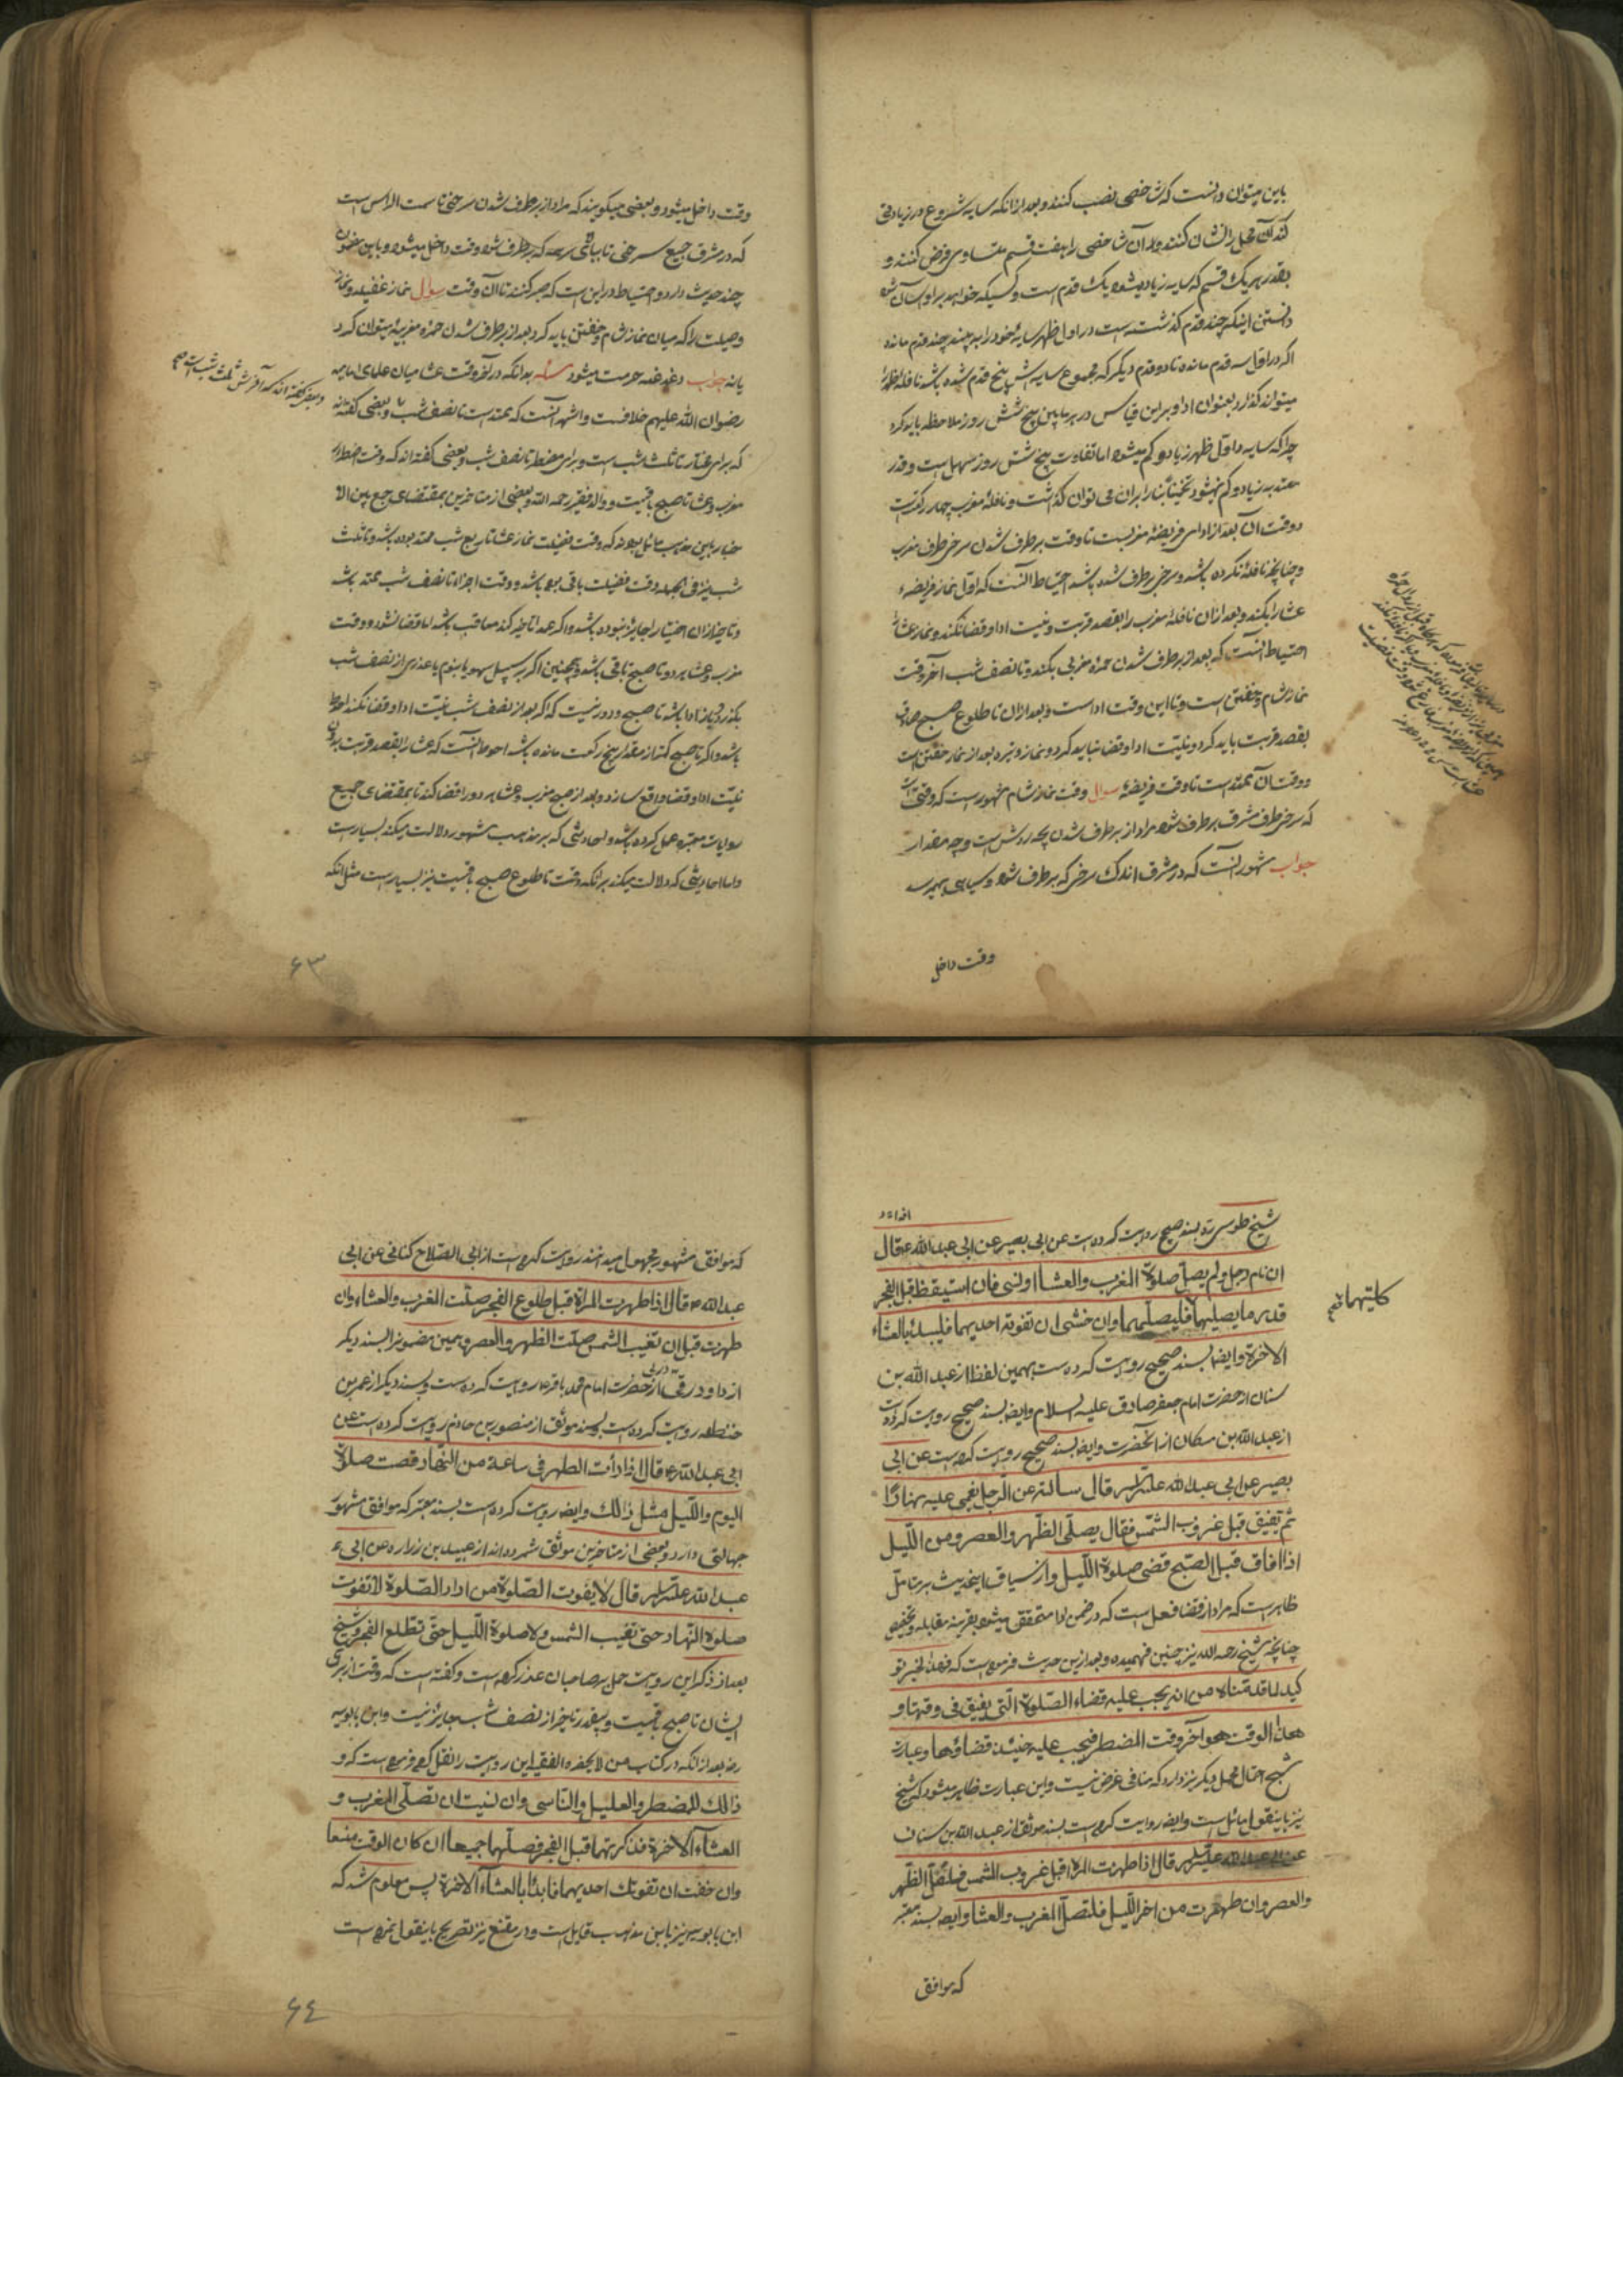 باین میتوان دانست که شاخصی نصب کنند و بعد از آنکه سایه شروع در زیادتی
کند آن محل را نشان کنند و آن شاخص را هفت قسم متساوی فرض کنند و
بقدر هر یک قسم که سایه زیاد میشود یک قدم است و کسیکه خواهد بر او آسان شود
دانستن اینکه چند قدم گذشته است در اول ظهر سایهٔ خود را به بیند چند قدم مانده
اگر در اول سه قدم مانده تا دو قدم دیگر که مجموع سایه‌اش پنج قدم شده باشد نافلهٔ ظهر را
میتواند گذارد بعنوان ادا و بر این قیاس در هر مابین پنج شش روز ملاحظه باید کرد
چرا که سایه در اول ظهر زیاد و کم میشود اما تفاوت پنج شش روز سهل است و قدر
معتد به زیاد و کم نمیشود تخمیناً بنابران می توان گذاشت و نافلهٔ مغرب چهار رکعت است
و وقت آن بعد از ادای فریضهٔ مغربست تا وقت برطرف شدن سرخی طرف مغرب
و چنانچه نافله نکرده باشد و سرخی برطرف شده باشد احتیاط آنست که اول نماز فریضهٔ
عشا را بکند و بعد از آن نافلهٔ مغرب را بقصد قربت و نیت ادا و قضا نکند و نماز عشا را
احتیاط آنست که بعد از برطرف شدن حمرهٔ مغربی بکند و تا نصف شب آخر وقت
نماز شام و خفتن است و تا این وقت اداست و بعد از آن تا طلوع صبح صادق
بقصد قربت باید کرد و نیت ادا و قضا نباید کرد و نماز وتیره بعد از نماز خفتن است
و وقت آن ممتد است تا وقت فریضه سوال وقت نماز شام مشهور است که وقتی است
که سرخی طرف مشرق برطرف شود مراد از برطرف شدن بچه روش است و چه مقدار
جواب مشهور آنست که در مشرق اندک سرخی که برطرف شود و سیاهی بهم رسد
وقت داخل
وقت داخل میشود و بعضی میگویند که مراد از برطرف شدن سرخی تا سمت الراس است
که در مشرق جمیع سرخی تا بالای سر همه که برطرف شود وقت داخل میشود و باین مضمون
چند حدیث دارد و احتیاط در این است که صبر کنند تا آن وقت سوال نماز غفیله و نماز
وصیلت را که میان نماز شام و خفتن باید کرد بعد از برطرف شدن حمره مغربیه میتوان کرد
یا نه جواب دغدغه حرمت میشود مسئله بدانکه در آخر وقت عشا میان علمای امامیه
رضوان الله علیهم خلافست و اشهر آنست که ممتد است تا نصف شب و بعضی گفته‌اند
و بعضی گفته‌اند که آخرش ثلث شب است صح
که برای مختار تا ثلث شب است و برای مضطر تا نصف شب و بعضی گفته‌اند که وقت اضطراری
مغرب و عشا تا صبح باقیست و والد فقیر رحمه الله و بعضی از متاخرین بمقتضای جمع بین الا
خبار باین مذهب مائل بودند که وقت فضیلت نماز عشا تا ربع شب ممتد بوده باشد و تا ثلث
شب نیز فی الجمله وقت فضیلت باقی بوده باشد و وقت اجزا تا نصف شب ممتد باشد
و تاخیر از آن اختیارا جایز نبوده باشد و اگر عمدا تاخیر کند معاقب باشد اما قضا نشود و وقت
مغرب و عشا هر دو تا صبح باقی باشد و همچنین اگر بر سبیل سهو یا نوم یا عذری از نصف شب
بگذرد نیز ادا باشد تا صبح و دور نیست که اگر بعد از نصف شب نیت ادا و قضا نکند احوط
باشد و اگر تا صبح کمتر از مقدار پنج رکعت مانده باشد احوط آنست که عشا را بقصد قربت بدون
نیت ادا و قضا واقع سازد و بعد از صبح مغرب و عشا هر دو را قضا کند تا بمقتضای جمیع
روایات معتبره عمل کرده باشد و احادیثی که بر مذهب مشهور دلالت میکند بسیار است
و اما احادیثی که دلالت میکند بر آنکه وقت تا طلوع صبح باقیست نیز بسیار است مثل آنکه
۶۳
شیخ طوسی ره بسند صحیح روایت کرده است عن ابی بصیر عن ابی عبد الله ع قال
ان نام رجل ولم یصل صلوة المغرب والعشاء او نسی فان استیقظ قبل الفجر
قدر ما یصلیهما فلیصلهما وان خشی ان تفوته احدیهما فلیبدء بالعشاء
کلتیهما صح
الاخرة و ایضا بسند صحیح روایت کرده است بهمین لفظ از عبد الله بن
سنان از حضرت امام جعفر صادق علیه السلام و ایضا بسند صحیح روایت کرده است
از عبد الله بن مسکان از آنحضرت و ایضا بسند صحیح روایت کرده است عن ابی
بصیر عن ابی عبد الله علیه السلام قال سألته عن الرجل یغمی علیه نهارًا
ثم تفیق قبل غروب الشمس فقال یصلی الظهر والعصر ومن اللیل
اذا افاق قبل الصبح قضی صلوة اللیل و از سیاق اینحدیث بر متامل
ظاهر است که مراد از قضا فعل است که در ضمن ادا متحقق میشود بقرینه مقابله و تخصیص
چنانچه شیخ رحمه الله نیز چنین فهمیده و بعد از این حدیث فرموده است که فهذا الخبر تو
کید لما قدمناه من انه یجب علیه قضاء الصلوة التی یفیق فی وقتها و
هذا الوقت هو آخر وقت المضطر فیجب علیه حینئذ قضاؤها و عبارت
شیخ احتمال محمل دیگر نیز دارد که منافی غرض نیست و این عبارت ظاهر میشود که شیخ
نیز باینقول مائل است و ایضا روایت کرده است بسند موثق از عبد الله بن سنان
عن ابی عبد الله علیه السلام قال اذا طهرت المرأة قبل غروب الشمس فلتصل الظهر
والعصر وان طهرت من اخر اللیل فلتصل المغرب والعشا و ایضا بسند معتبر
که موافق
که موافق مشهور مجهول میدانند روایت کرده است از ابی الصلاح کنانی عن ابی
عبد الله ع قال اذا طهرت المرأة قبل طلوع الفجر صلت المغرب والعشاء وان
طهرت قبل ان تغیب الشمس صلت الظهر والعصر و همین مضمون را بسند دیگر
از داود رقی از حضرت امام محمد باقر ع روایت کرده است و بسند دیگر از عمر بن
حنظله روایت کرده است و بسند موثق از منصور بن حازم روایت کرده است عن
ابی عبد الله ع قال اذا رأت الطهر فی ساعة من النهار قضت صلوة
الیوم واللیل مثل ذالك و ایضا روایت کرده است بسند معتبر که موافق مشهور
جهالتی دارد و بعضی از متاخرین موثق شمرده‌اند از عبید بن زراره عن ابی
عبد الله علیه السلام قال لا یفوت الصلوة من اراد الصلوة لا تفوت
صلوة النهار حتی تغیب الشمس ولا صلوة اللیل حتی تطلع الفجر و شیخ
بعد از ذکر این روایت حمل بر صاحبان عذر کرده است و گفته است که وقت از برای
ایشان تا صبح باقیست و بیعذر تاخیر از نصف شب جایز نیست و ابن بابویه
رض بعد از آنکه در کتاب من لا یحضره الفقیه این روایت را نقل کرده فرموده است که و
ذالك للمضطر والعلیل والناسی وان نسیت ان تصلی المغرب و
العشاء الاخرة فذکرتهما قبل الفجر فصلهما جمیعا ان کان الوقت متسعا
وان خفت ان تفوتك احدیهما فابدأ بالعشاء الاخرة پس معلوم شد که
ابن بابویه نیز باین مذهب قایل است و در مقنع نیز تصریح باینقول نموده است
۶٤